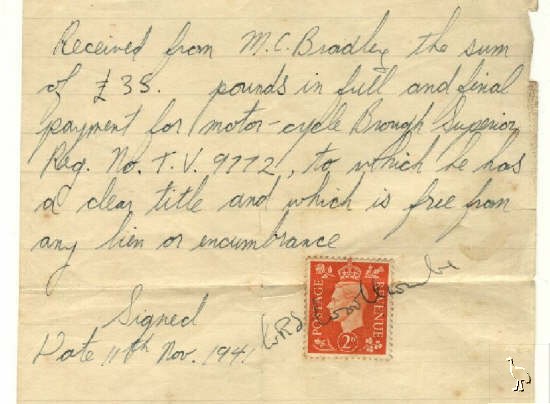 Received from M.C. Bradley the sum
of £38. pounds in full and final
payment for motor-cycle Brough Superior,
Reg. No. T.V. 9772, to which he has
a clear title and which is free from
any lien or encumbrance
Signed
Date 11th Nov. 1941
POSTAGE REVENUE
2D